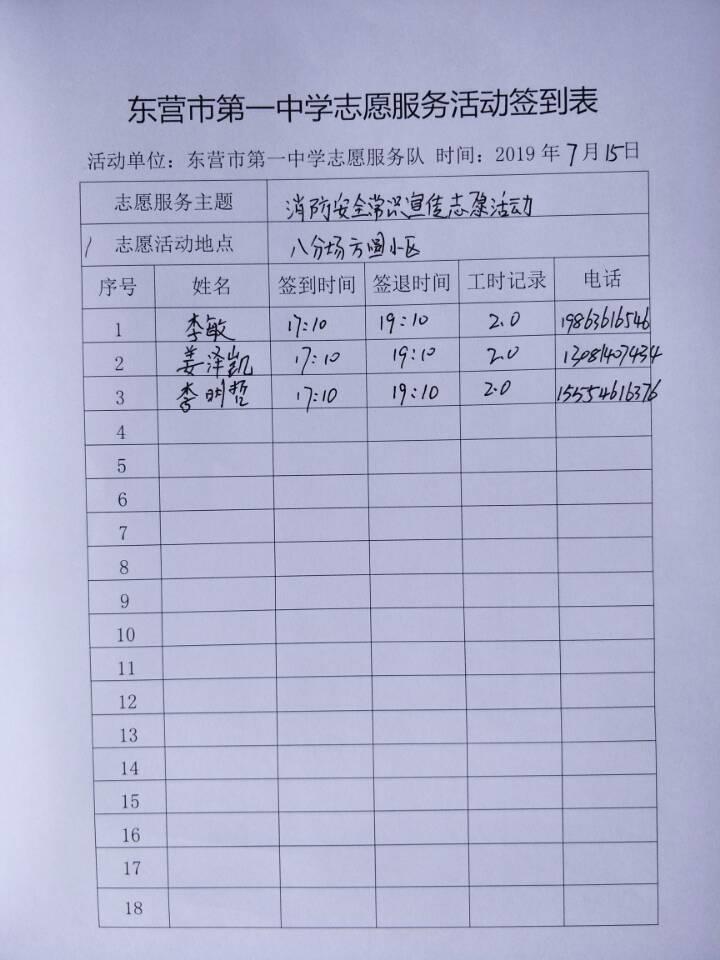 东营市第一中学志愿服务活动签到表
活动单位：东营市第一中学志愿服务队 时间：2019 年 7 月 15 日
志愿服务主题 消防安全常识宣传志愿活动
志愿活动地点 八分场方圆小区
序号 姓名 签到时间 签退时间 工时记录 电话
1 李敏 17:10 19:10 2.0 19863616546
2 姜泽凯 17:10 19:10 2.0 13081407434
3 李明哲 17:10 19:10 2.0 15554616376
4
5
6
7
8
9
10
11
12
13
14
15
16
17
18